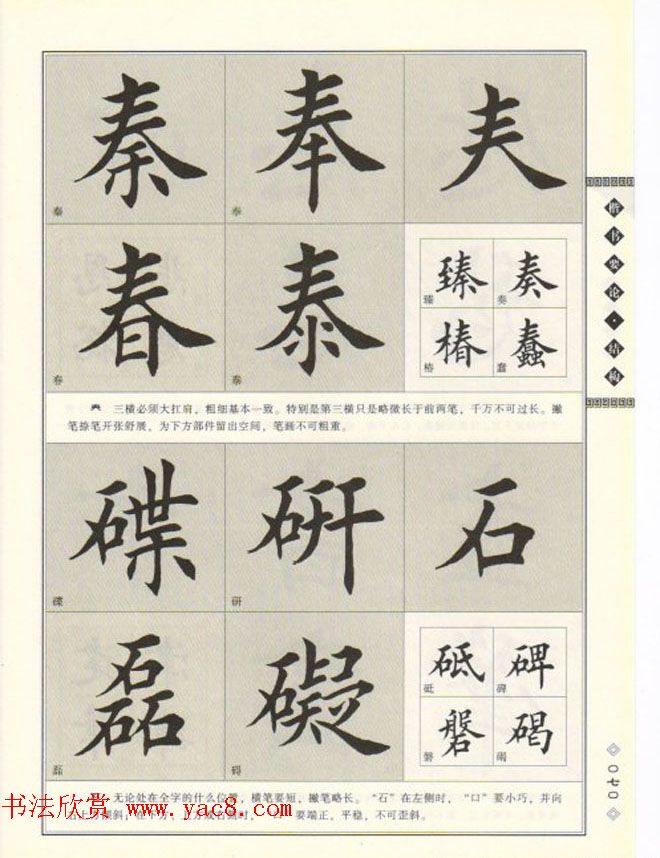 秦 奉 𡗗
秦 奉
春 泰 臻 奏
臻 奏
椿 蠢
春 泰 椿 蠢
三横必须大扛肩，粗细基本一致。特别是第三横只是略微长于前两笔，千万不可过长。撇
笔捺笔开张舒展，为下方部件留出空间，笔画不可粗重。
碟 研 石
碟 研
磊 礙 砥 碑
砥 碑
磐 碣
磊 碍 磐 碣
无论处在全字的什么位置，横笔要短，撇笔略长。“石”在左侧时，“口”要小巧，并向
右上方倾斜，在下方、上方或右侧时，“口”要端正，平稳，不可歪斜。
楷书要论·结构
〇七〇
书法欣赏 www.yac8.com